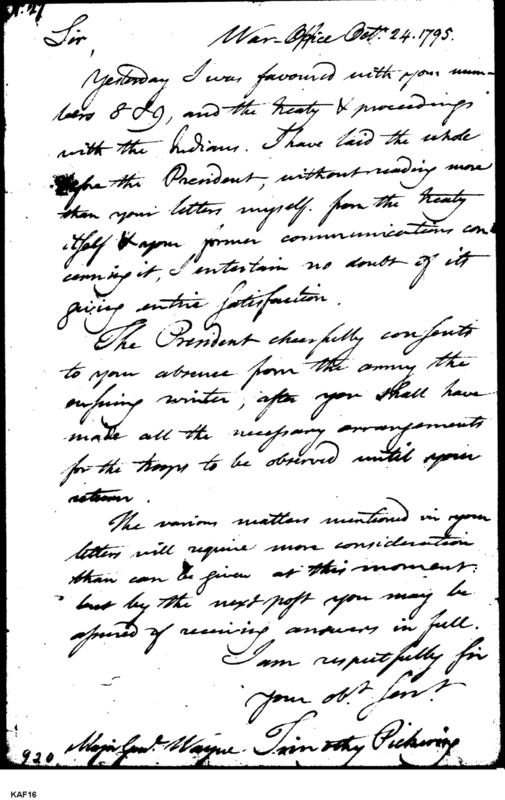 No. 27
War-Office Octr. 24. 1795.
Sir,
Yesterday I was favoured with your num-
bers 8 & 9, and the treaty & proceedings
with the Indians. I have laid the whole
before the President, without reading more
than your letters myself. from the treaty
itself & your former communications con-
cerning it, I entertain no doubt of its
giving entire satisfaction.
The President cheerfully consents
to your absence from the army the
ensuing winter, after you shall have
made all the necessary arrangements
for the troops to be observed until your
return.
The various matters mentioned in your
letters will require more consideration
than can be given at this moment:
but by the next post you may be
assured of receiving answers in full.
I am respectfully sir
your obt. servt.
Timothy Pickering
Major Genl. Wayne
920
KAF16